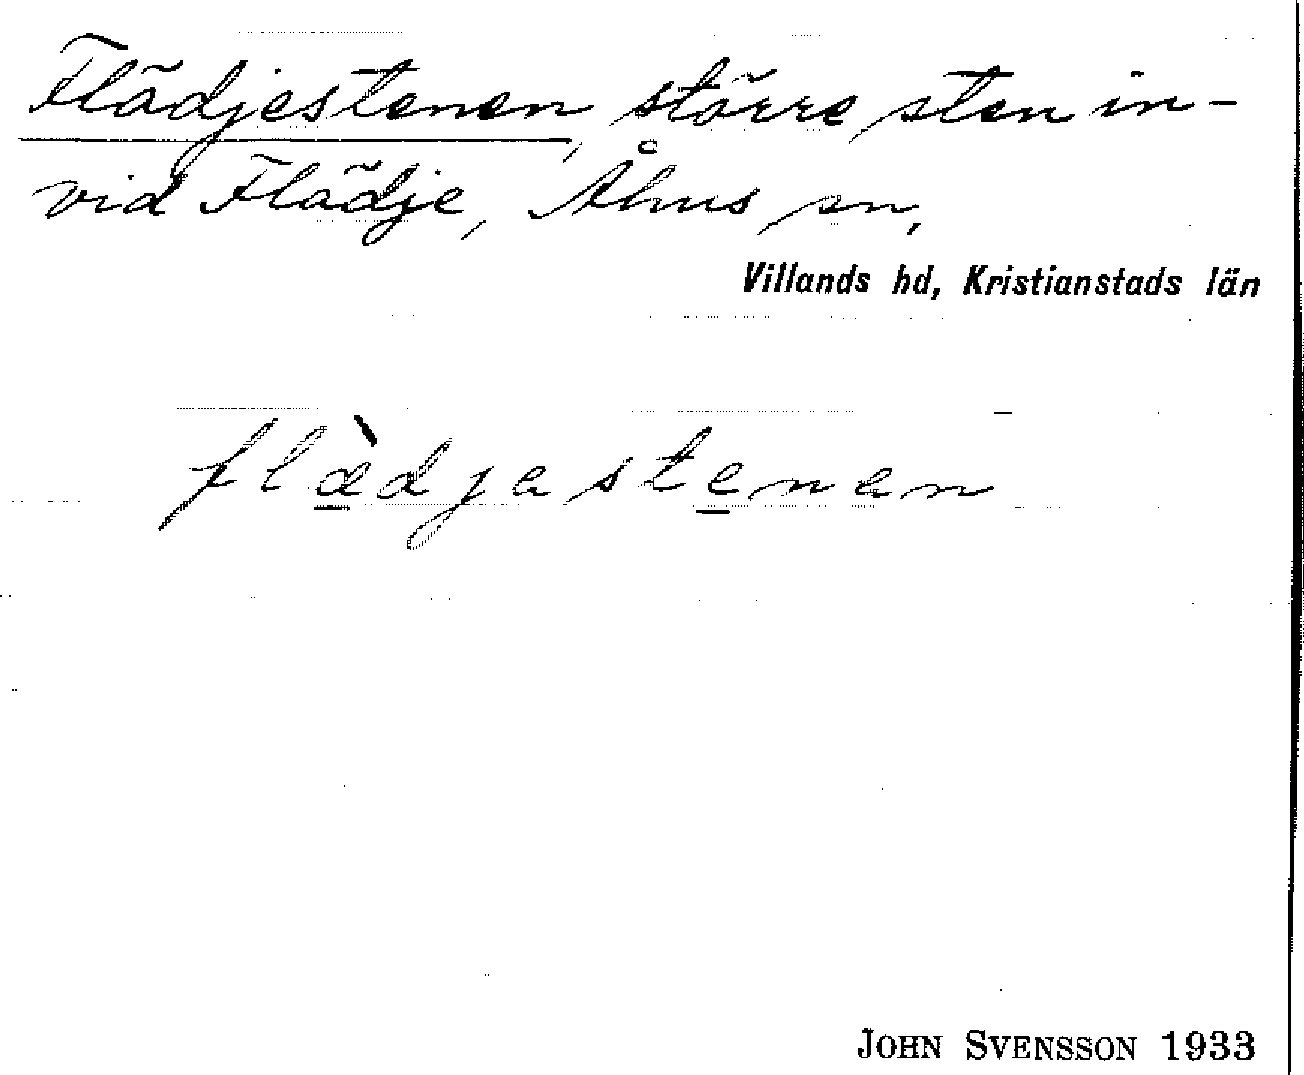 Flädjestenen, större sten in-
vid Flädje, Åhus sn,
Villands hd, Kristianstads län
flæ̀djastenan
JOHN SVENSSON 1933